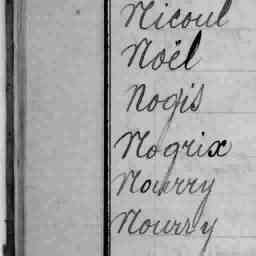 Nicoul
Noël
Nogis
Nogrix
Nourry
Nourry